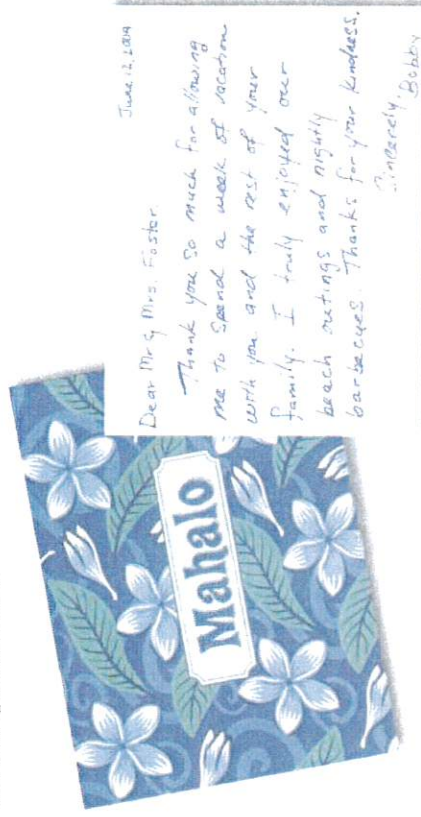 Mahalo
June 12, 2009
Dear Mr & Mrs. Foster.
Thank you so much for allowing
me to spend a week of vacation
with you and the rest of your
family. I truly enjoyed our
beach outings and nightly
barbecues. Thanks for your kindness.
Sincerely,
Bobby